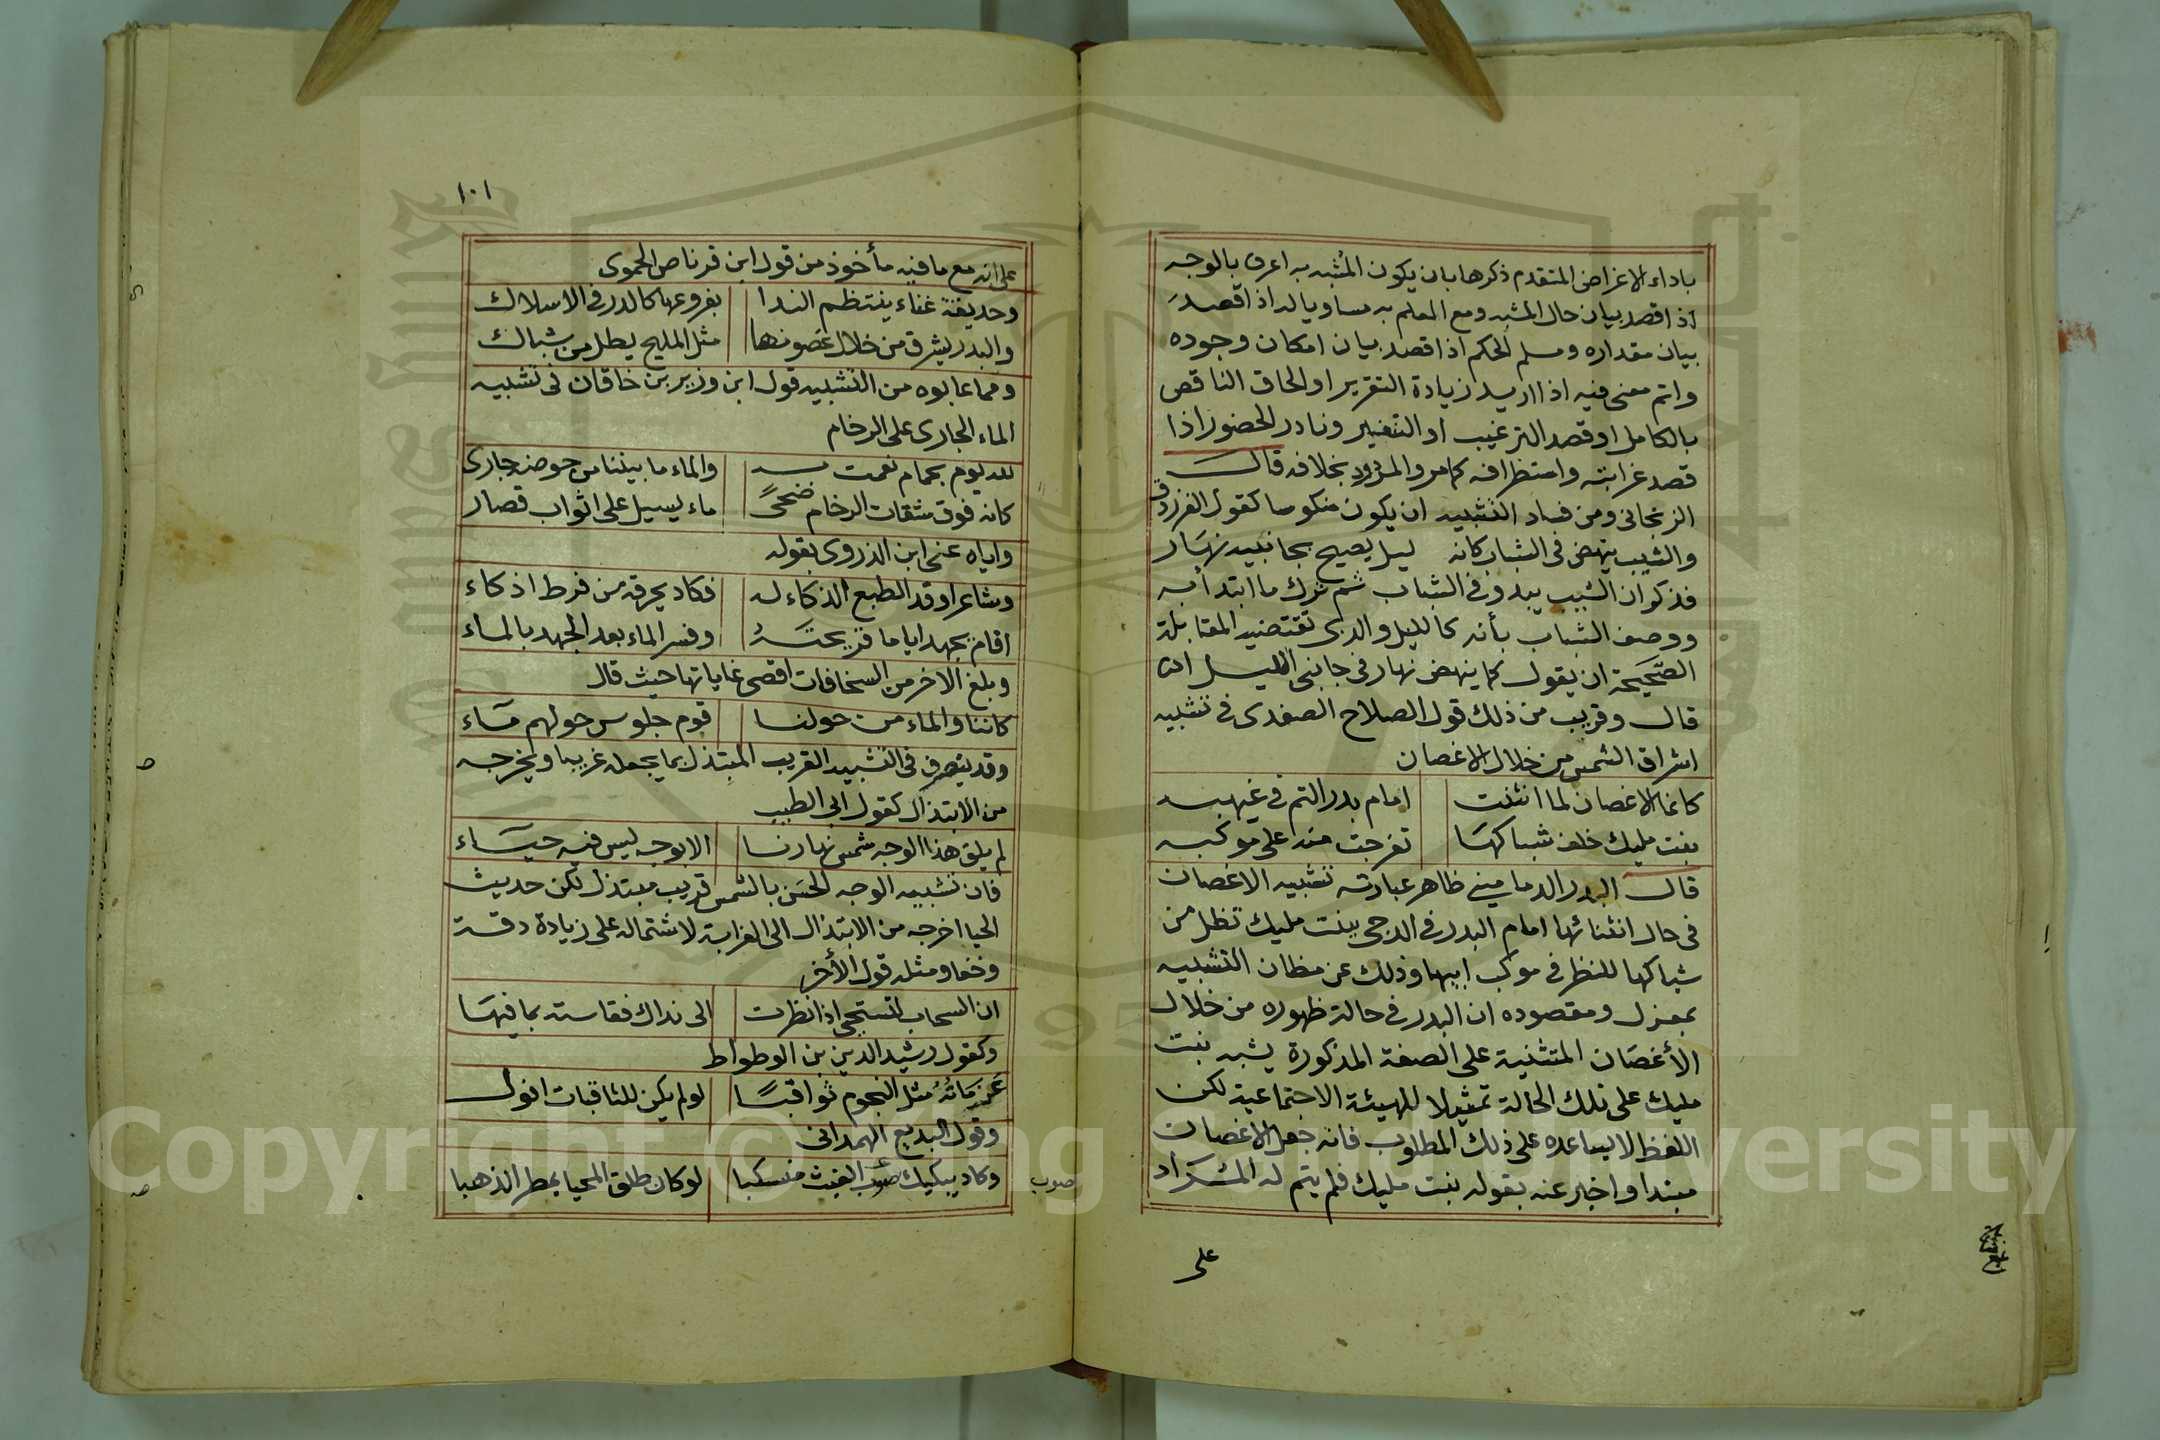 باداء الاغراض المتقدم ذكرها بان يكون المشبه به اعرف بالوجه
اذا قصد بيان حال المشبه ومع العلم به مساويا له اذا قصد
بيان مقداره ومسلم الحكم اذا قصد بيان امكان وجوده
واتم معنى فيه اذا اريد زيادة التقرير او الحاق الناقص
بالكامل او قصد الترغيب او التنفير ونادر الحضور اذا
قصد غرابته واستظرافه كما مر والمردود بخلافه قال
الزنجانى ومن فساد التشبيه ان يكون منكوسا كقول الفرزدق
والشيب ينهض فى الشباب كانه ليل يصيح بجانبيه نهار
فذكر ان الشيب يبدو فى الشباب ثم ترك ما ابتدأ به
ووصف الشباب بأنه كالليل والذى تقتضيه المقابلة
الصحيحة ان يقول كما ينهض نهار فى جانبى الليل
قال وقريب من ذلك قول الصلاح الصفدى فى تشبيه
اشراق الشمس من خلال الاغصان
كانما الاغصان لما انثنت امام بدر التم فى غيهبه
بنت مليك خلف شباكها تفرجت منه على موكبه
قال البدر الدمامينى ظاهر عبارته تشبيه الاغصان
فى حال انثنائها امام البدر فى الدجى ببنت مليك تظل من
شباكها للنظر فى موكب ابيها وذلك عن مظان التشبيه
بمعزل ومقصوده ان البدر فى حالة ظهوره من خلال
الأغصان المتثنية على الصفة المذكورة يشبه بنت
مليك على تلك الحالة تمثيلا للهيئة الاجتماعية لكن
اللفظ لا يساعده على ذلك المطلوب فانه جعل الاغصان
مبتدا واخبر عنه بقوله بنت مليك فلم يتم له المراد
على
١٠١
على انه مع ما فيه مأخوذ من قول ابن قرناص الحموى
وحديقة غناء ينتظم الندا بفروعها كالدر فى الاسلاك
والبدر يشرق من خلال غصونها مثل المليح يطل من شباك
ومما عابوه من التشبيه قول ابن وزير بن خاقان فى تشبيه
الماء الجارى على الرخام
لله يوم بحمام نعمت به والماء ما بيننا من حوضه جارى
كانه فوق شقات الرخام ضحىً ماء يسيل على اثواب قصار
واياه عنى ابن الذروى بقوله
وشاعر اوقد الطبع الذكاء له فكاد يحرقه من فرط اذكاء
اقام يجهد اياما قريحته وفسر الماء بعد الجهد بالماء
وبلغ الاخر من السخافات اقصى غاياتها حيث قال
كاننا والماء من حولنا قوم جلوس حولهم ماء
وقد يتصرف فى التشبيه القريب المبتذل بما يجعله غريبا ويخرجه
من الابتذال كقول ابى الطيب
لم يلق هذا الوجه شمس نهارنا الا بوجه ليس فيه حياء
فان تشبيه الوجه الحسن بالشمس قريب مبتذل لكن حديث
الحيا اخرجه من الابتذال الى الغرابة لاشتماله على زيادة دقة
وخفا ومثله قول الأخر
ان السحاب لتستحيى اذا نظرت الى نداك فقاسته بما فيها
وكقول رشيد الدين بن الوطواط
عزماتُهُ مثل النجوم ثواقبًا لو لم يكن للثاقبات افول
وقول البديع الهمدانى
وكاد يحكيك صوب الغيث منسكبا لو كان طلق المحيا يمطر الذهبا
صوب
Copyright © King Saud University